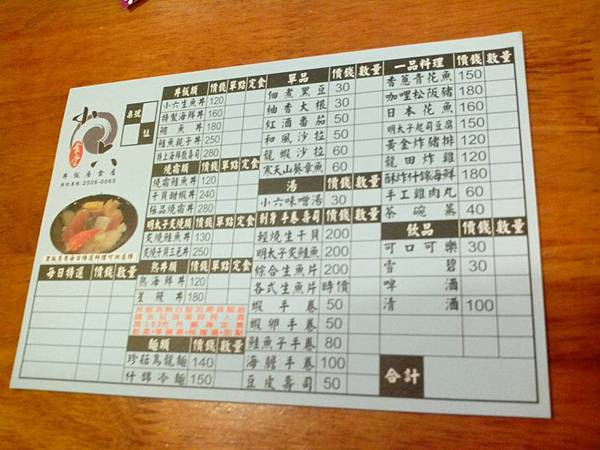 小六
食堂
丼飯居食屋
預約專線:2506-0065
桌號
位
每日特選 價錢 數量
丼飯類 價錢 單點 定食
小六生魚丼 120
特製海鮮丼 160
鮪魚丼 180
鮭魚親子丼 250
特上海鮮散壽司 280
燒霜類 價錢 單點 定食
燒霜鮭魚丼 120
干貝甜蝦丼 240
極品燒霜丼 280
明太子炙燒類 價錢 單點 定食
炙燒鮭魚丼 130
炙燒干貝三色丼 250
熟丼類 價錢 單點 定食
熟海鮮丼 120
星鰻丼 180
麵類 價錢 數量
珍菇烏龍麵 140
什錦冷麵 150
單品 價錢 數量
佃煮黑豆 30
柚香大根 30
紅酒番茄 50
和風沙拉 50
龍蝦沙拉 60
寒天山葵章魚 60
湯
小六味噌湯 30
刺身 手卷 壽司 價錢 數量
輕燒生干貝 200
明太子炙鮭魚 200
綜合生魚片 200
各式生魚片 時價
蝦手卷 50
蝦卵手卷 50
鮭魚子手卷 80
海膽手卷 100
豆皮壽司 50
一品料理 價錢 數量
香蔥青花魚 150
咖哩松阪豬 180
日本花魚 160
明太子起司豆腐 150
黃金炸豬排 120
龍田炸雞 120
酥炸什錦海鮮 180
手工雞肉丸 60
茶碗蒸 40
飲品 價錢 數量
可口可樂 30
雪碧 30
啤酒
清酒 100
合計